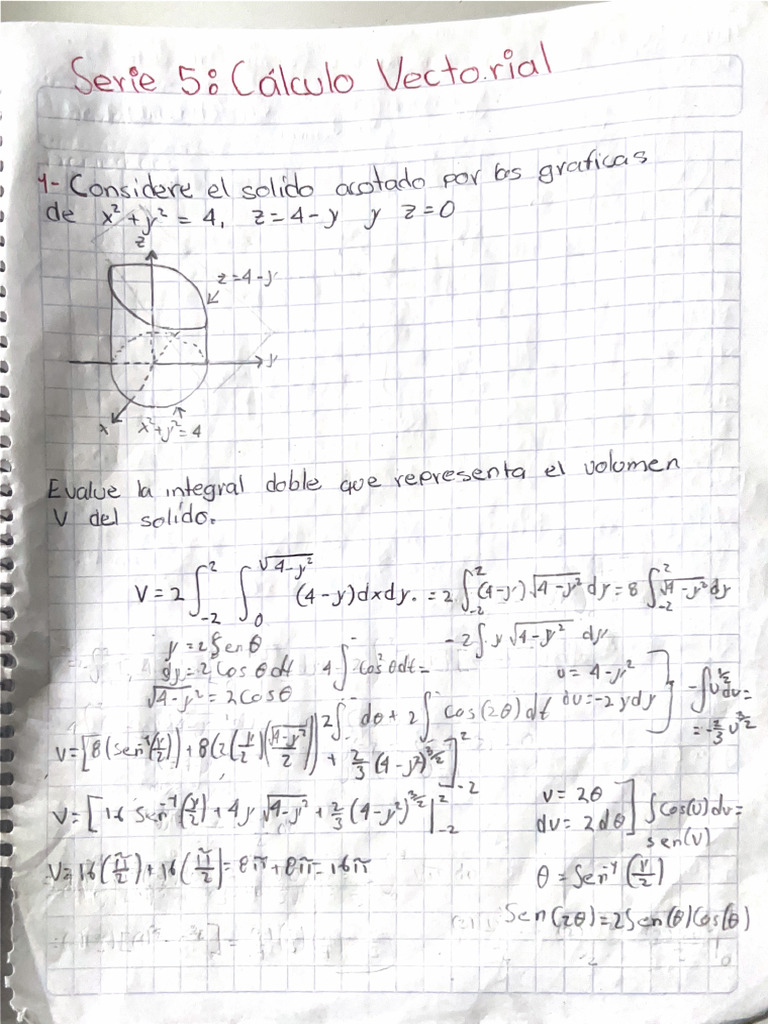 Serie 5: Cálculo Vectorial
1- Considere el solido acotado por las graficas
de x² + y² = 4, z = 4 - y y z = 0
z
z = 4 - y
y
x
x² + y² = 4
Evalue la integral doble que representa el volomen
V del solido.
V = 2∫₋₂² ∫₀^√(4-y²) (4-y)dxdy. = 2∫₋₂² (4-y)√(4-y²) dy = 8∫₋₂² √(4-y²) dy
- 2∫y√(4-y²) dy
y = 2Senθ
dy = 2Cosθdt 4∫cos²θdt =
√(4-y²) = 2Cosθ
2∫dθ + 2∫cos(2θ)dt
u = 4-y²
du = -2ydy
-∫u^½du =
= -⅔u^3/2
V = [8(sen⁻¹(y/2)) + 8(2(y/2)(√(4-y²)/2)) + ⅔(4-y²)^3/2]₋₂²
V = [16 Sen⁻¹(y/2) + 4y√(4-y²) + ⅔(4-y²)^3/2|₋₂²
V = 16(π/2) + 16(π/2| = 8π + 8π = 16π
v = 2θ
dv = 2dθ
∫cos(v)dv =
sen(v)
θ = Sen⁻¹(y/2)
Sen(2θ) = 2Sen(θ)Cos(θ)